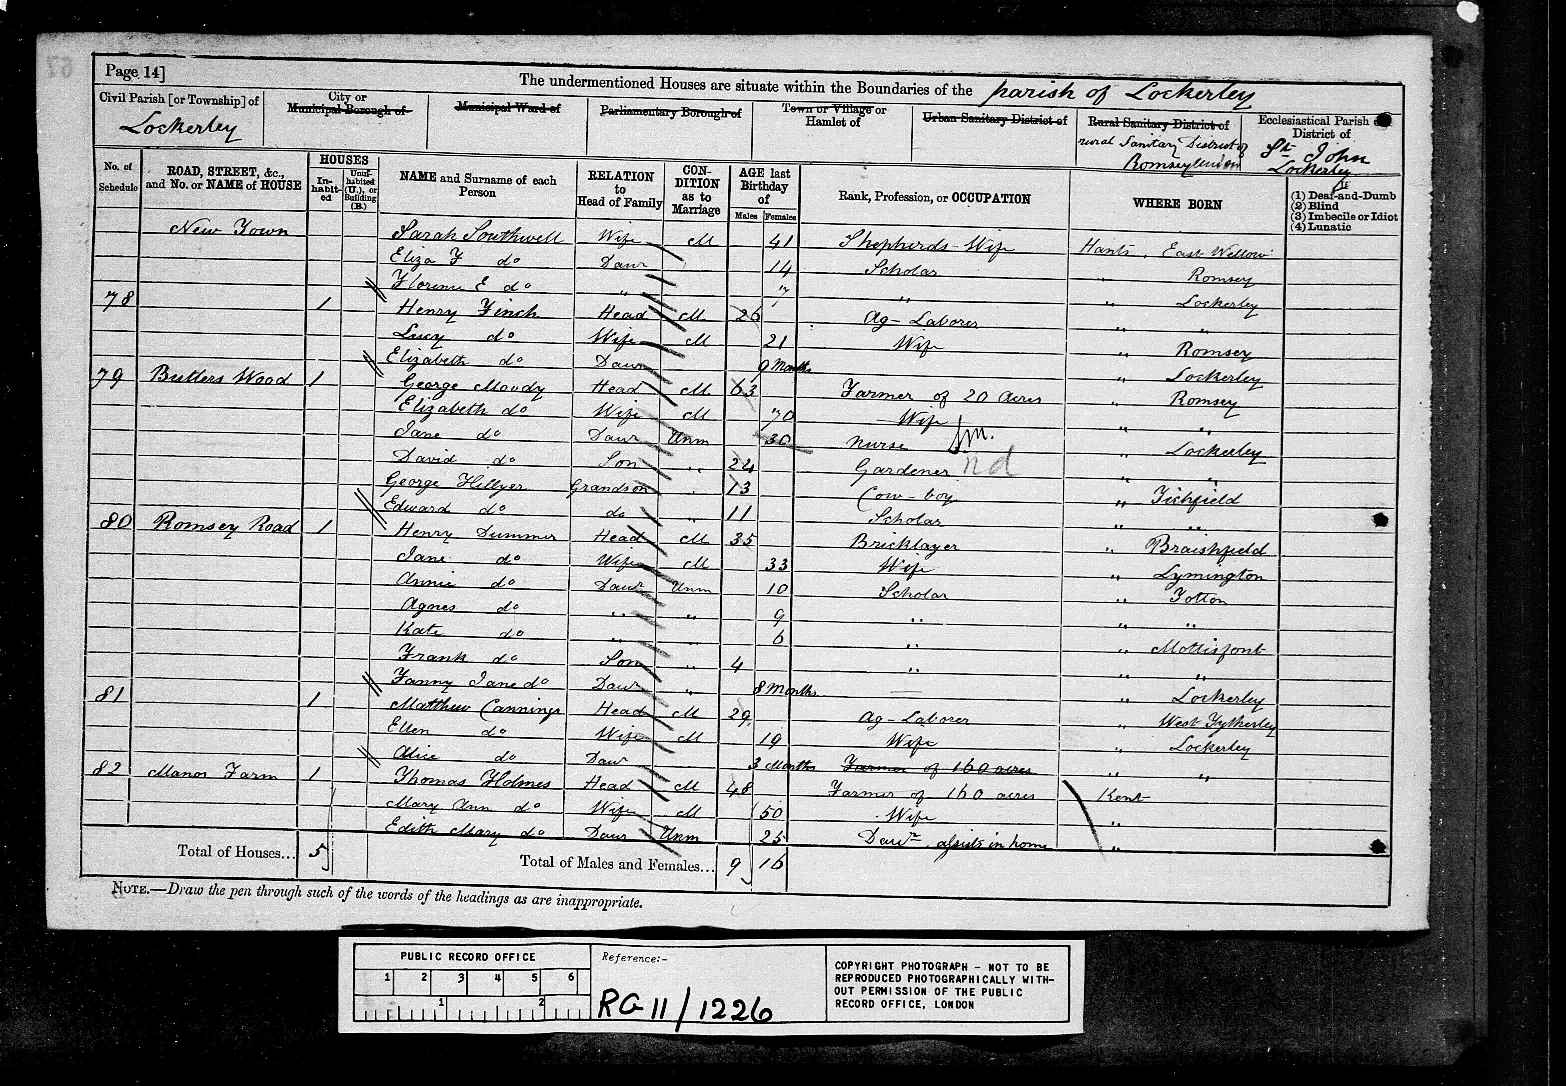 Page 14]
The undermentioned Houses are situate within the Boundaries of the parish of Lockerley
Civil Parish [or Township] of
Lockerley
City or
Municipal Borough of
Municipal Ward of
Parliamentary Borough of
Town or Village or
Hamlet of
Urban Sanitary District of
Rural Sanitary District of
rural Sanitary District of
Romsey Union
Ecclesiastical Parish or
District of
St. John
Lockerley
No. of Schedule
ROAD, STREET, &c., and No. or NAME of HOUSE
HOUSES
In-habit-ed
Unin-habited (U.), or Building (B.)
NAME and Surname of each Person
RELATION to Head of Family
CON-DITION as to Marriage
AGE last Birthday of
Males
Females
Rank, Profession, or OCCUPATION
WHERE BORN
If
(1) Deaf-and-Dumb
(2) Blind
(3) Imbecile or Idiot
(4) Lunatic
New Town Sarah Southwell Wife M 41 Shepherds Wife Hants, East Wellow
Eliza F do Daur 14 Scholar " Romsey
Florence E do " 7 " " Lockerley
78 1 Henry Finch Head M 26 Ag-Laborer " "
Lucy do Wife M 21 Wife " Romsey
Elizabeth do Daur 9 Months " Lockerley
79 Butlers Wood 1 George Moody Head M 63 Farmer of 20 acres " Romsey
Elizabeth do Wife M 70 Wife " "
Jane do Daur Unm 30 Nurse " Lockerley
David do Son " 24 Gardener nd " "
George Hillyer Grandson " 13 Cow-boy " Tichfield
Edward do do " 11 Scholar " "
80 Romsey Road 1 Henry Dummer Head M 35 Bricklayer " Braishfield
Jane do Wife M 33 Wife " Lymington
Annie do Daur Unm 10 Scholar " Totton
Agnes do " " 9 " " "
Kate do " " 6 " " Mottisfont
Frank do Son " 4 " " "
Fanny Jane do Daur " 8 Months — " Lockerley
81 1 Matthew Cannings Head M 29 Ag-Laborer " West Tytherley
Ellen do Wife M 19 Wife " Lockerley
Alice do Daur 3 Months Farmer of 160 acres " "
82 Manor Farm 1 Thomas Holmes Head M 48 Farmer of 160 acres Kent
Mary Ann do Wife M 50 Wife "
Edith Mary do Daur Unm 25 Daur assists in home "
Total of Houses... 5
Total of Males and Females... 9 16
NOTE.—Draw the pen through such of the words of the headings as are inappropriate.
PUBLIC RECORD OFFICE
1 2 3 4 5 6
1 2
Reference:-
RG 11/1226
COPYRIGHT PHOTOGRAPH - NOT TO BE
REPRODUCED PHOTOGRAPHICALLY WITH-
OUT PERMISSION OF THE PUBLIC
RECORD OFFICE, LONDON